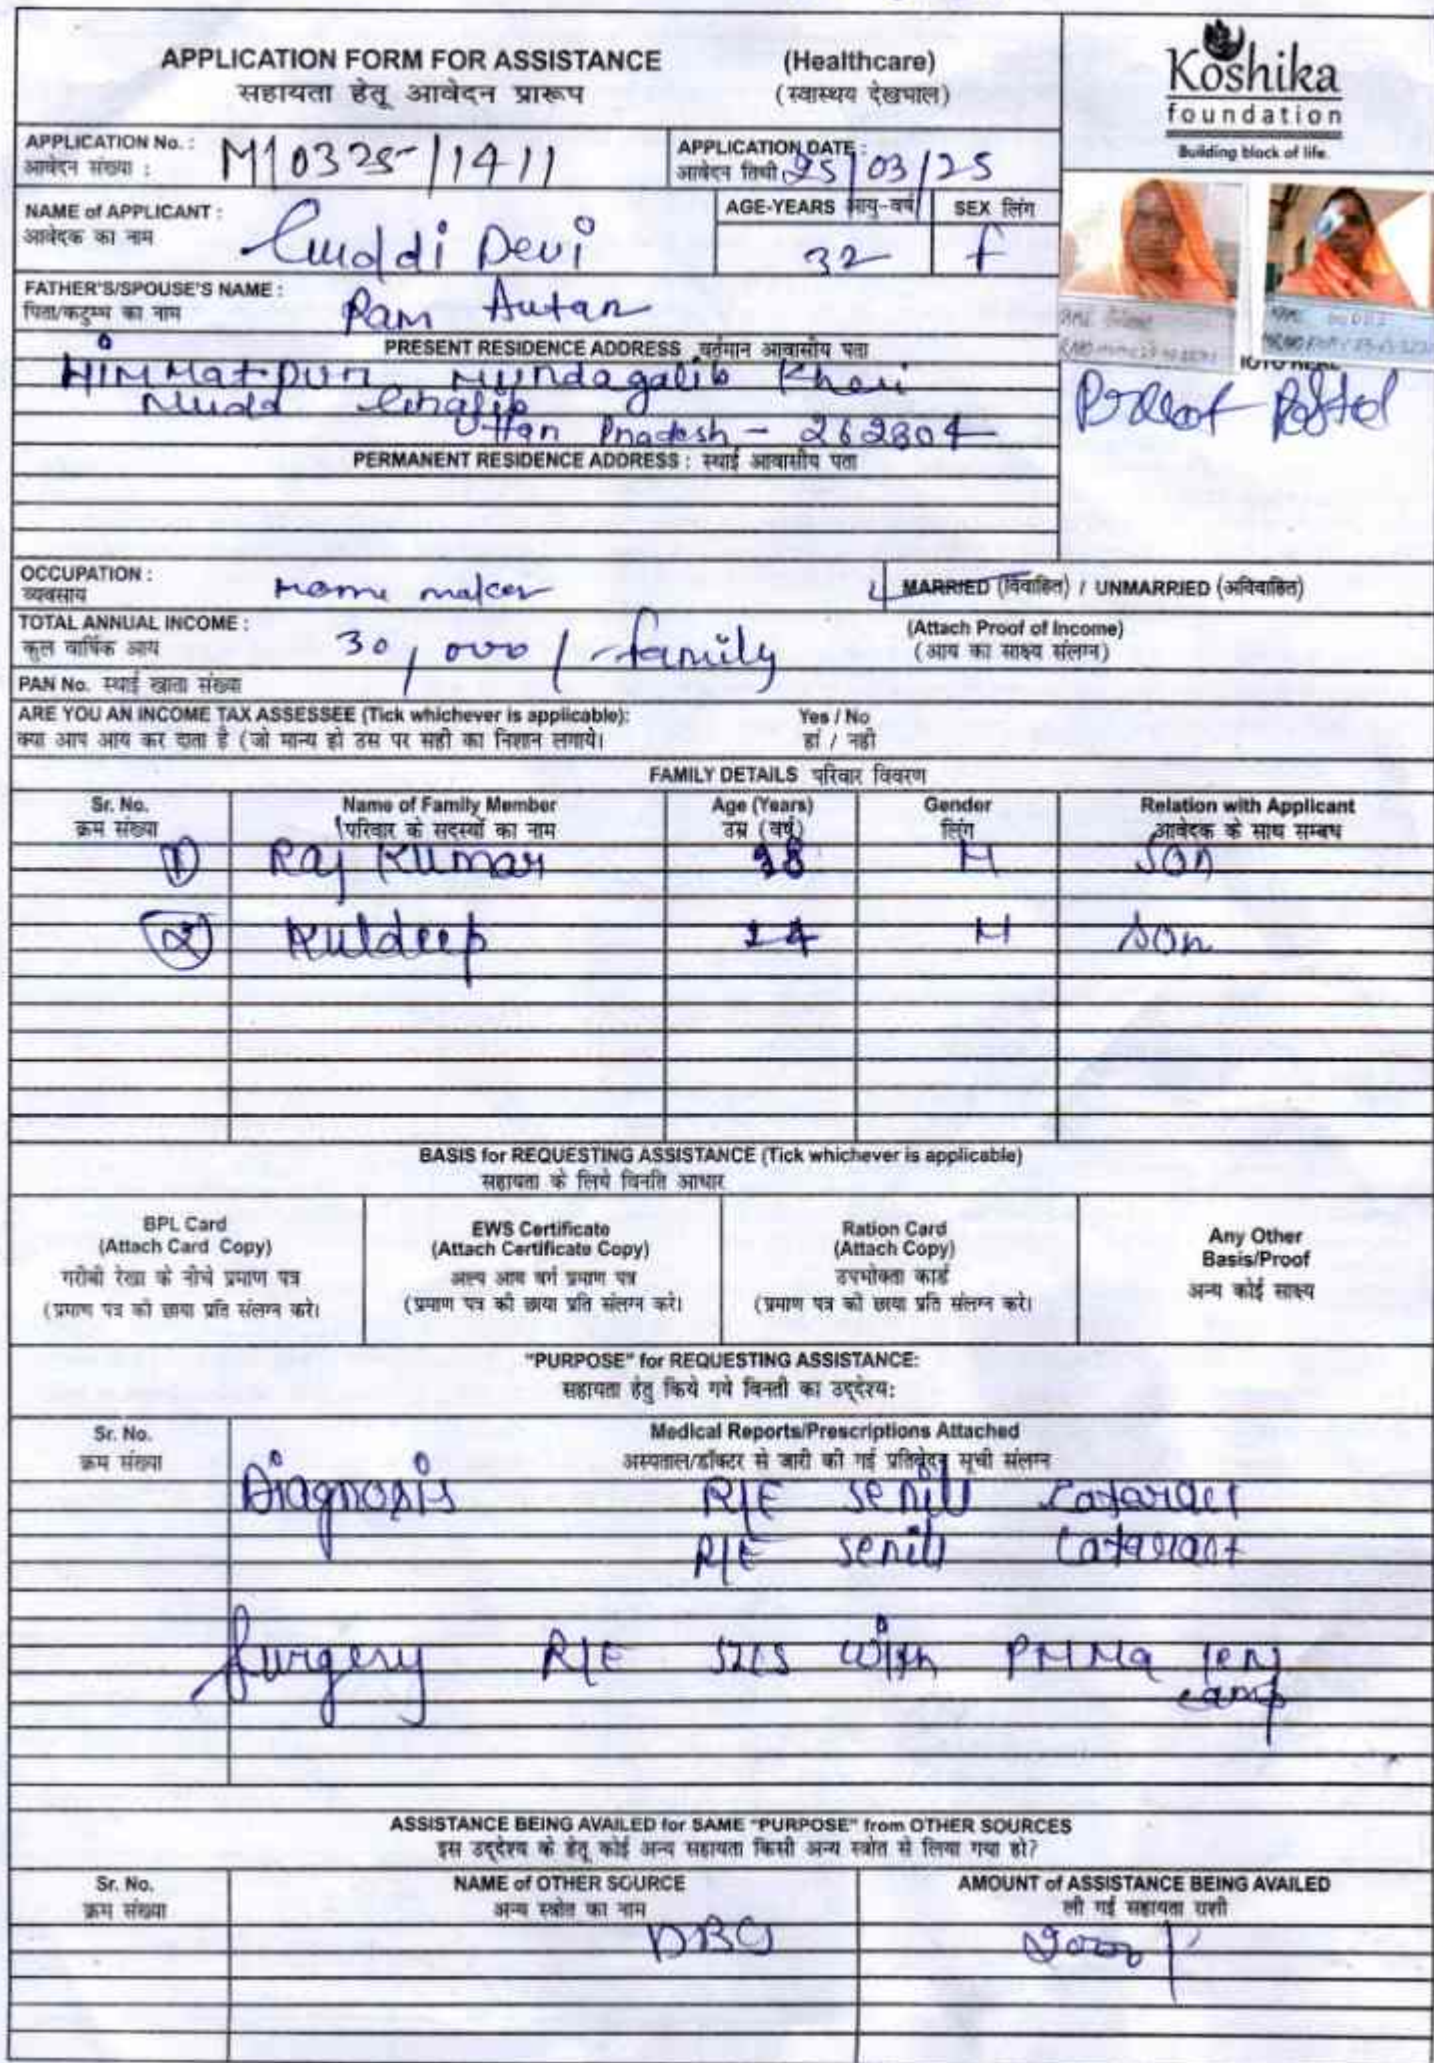 APPLICATION FORM FOR ASSISTANCE (Healthcare)
सहायता हेतू आवेदन प्रारूप (स्वास्थय देखभाल)
Koshika
foundation
Building block of life.
APPLICATION No. : M10325-/1411
आवेदन संख्या :
APPLICATION DATE : 25/03/25
आवेदन तिथी
NAME of APPLICANT : Guddi Devi
आवेदक का नाम
AGE-YEARS आयु-वर्ष 32
SEX लिंग f
FATHER'S/SPOUSE'S NAME : Ram Autar
पिता/कटुम्ब का नाम
PRESENT RESIDENCE ADDRESS वर्तमान आवासीय पता
Himmatpur Mundagalib Kheri
Muda Ghalib
Uttar Pradesh - 262804
PERMANENT RESIDENCE ADDRESS : स्थाई आवासीय पता
OCCUPATION : Home maker
व्यवसाय
MARRIED (विवाहित) / UNMARRIED (अविवाहित)
TOTAL ANNUAL INCOME : 30,000/-family
कुल वार्षिक आय
(Attach Proof of Income)
(आय का साक्ष्य संलग्न)
PAN No. स्थाई खाता संख्या
ARE YOU AN INCOME TAX ASSESSEE (Tick whichever is applicable): Yes / No
क्या आप आय कर दाता है (जो मान्य हो उस पर सही का निशान लगाये। हां / नही
FAMILY DETAILS परिवार विवरण
Sr. No. Name of Family Member Age (Years) Gender Relation with Applicant
क्रम संख्या परिवार के सदस्यों का नाम उम्र (वर्ष) लिंग आवेदक के साथ सम्बध
1 Raj Kumar 18 M Son
2 Kuldeep 14 M Son
BASIS for REQUESTING ASSISTANCE (Tick whichever is applicable)
सहायता के लिये विनति आधार
BPL Card
(Attach Card Copy)
गरीबी रेखा के नीचे प्रमाण पत्र
(प्रमाण पत्र की छाया प्रति संलग्न करे।
EWS Certificate
(Attach Certificate Copy)
अल्प आय वर्ग प्रमाण पत्र
(प्रमाण पत्र की छाया प्रति संलग्न करे।
Ration Card
(Attach Copy)
उपभोक्ता कार्ड
(प्रमाण पत्र की छाया प्रति संलग्न करे।
Any Other
Basis/Proof
अन्य कोई साक्ष्य
"PURPOSE" for REQUESTING ASSISTANCE:
सहायता हेतु किये गये विनती का उद्देश्य:
Sr. No. Medical Reports/Prescriptions Attached
क्रम संख्या अस्पताल/डॉक्टर से जारी की गई प्रतिवेदन सूची संलग्न
Diagnosis R/E Senile Cataract
R/E Senile Cataract
Surgery R/E SICS with PMMA lens
camp
ASSISTANCE BEING AVAILED for SAME "PURPOSE" from OTHER SOURCES
इस उद्देश्य के हेतू कोई अन्य सहायता किसी अन्य स्त्रोत से लिया गया हो?
Sr. No. NAME of OTHER SOURCE AMOUNT of ASSISTANCE BEING AVAILED
क्रम संख्या अन्य स्त्रोत का नाम ली गई सहायता राशी